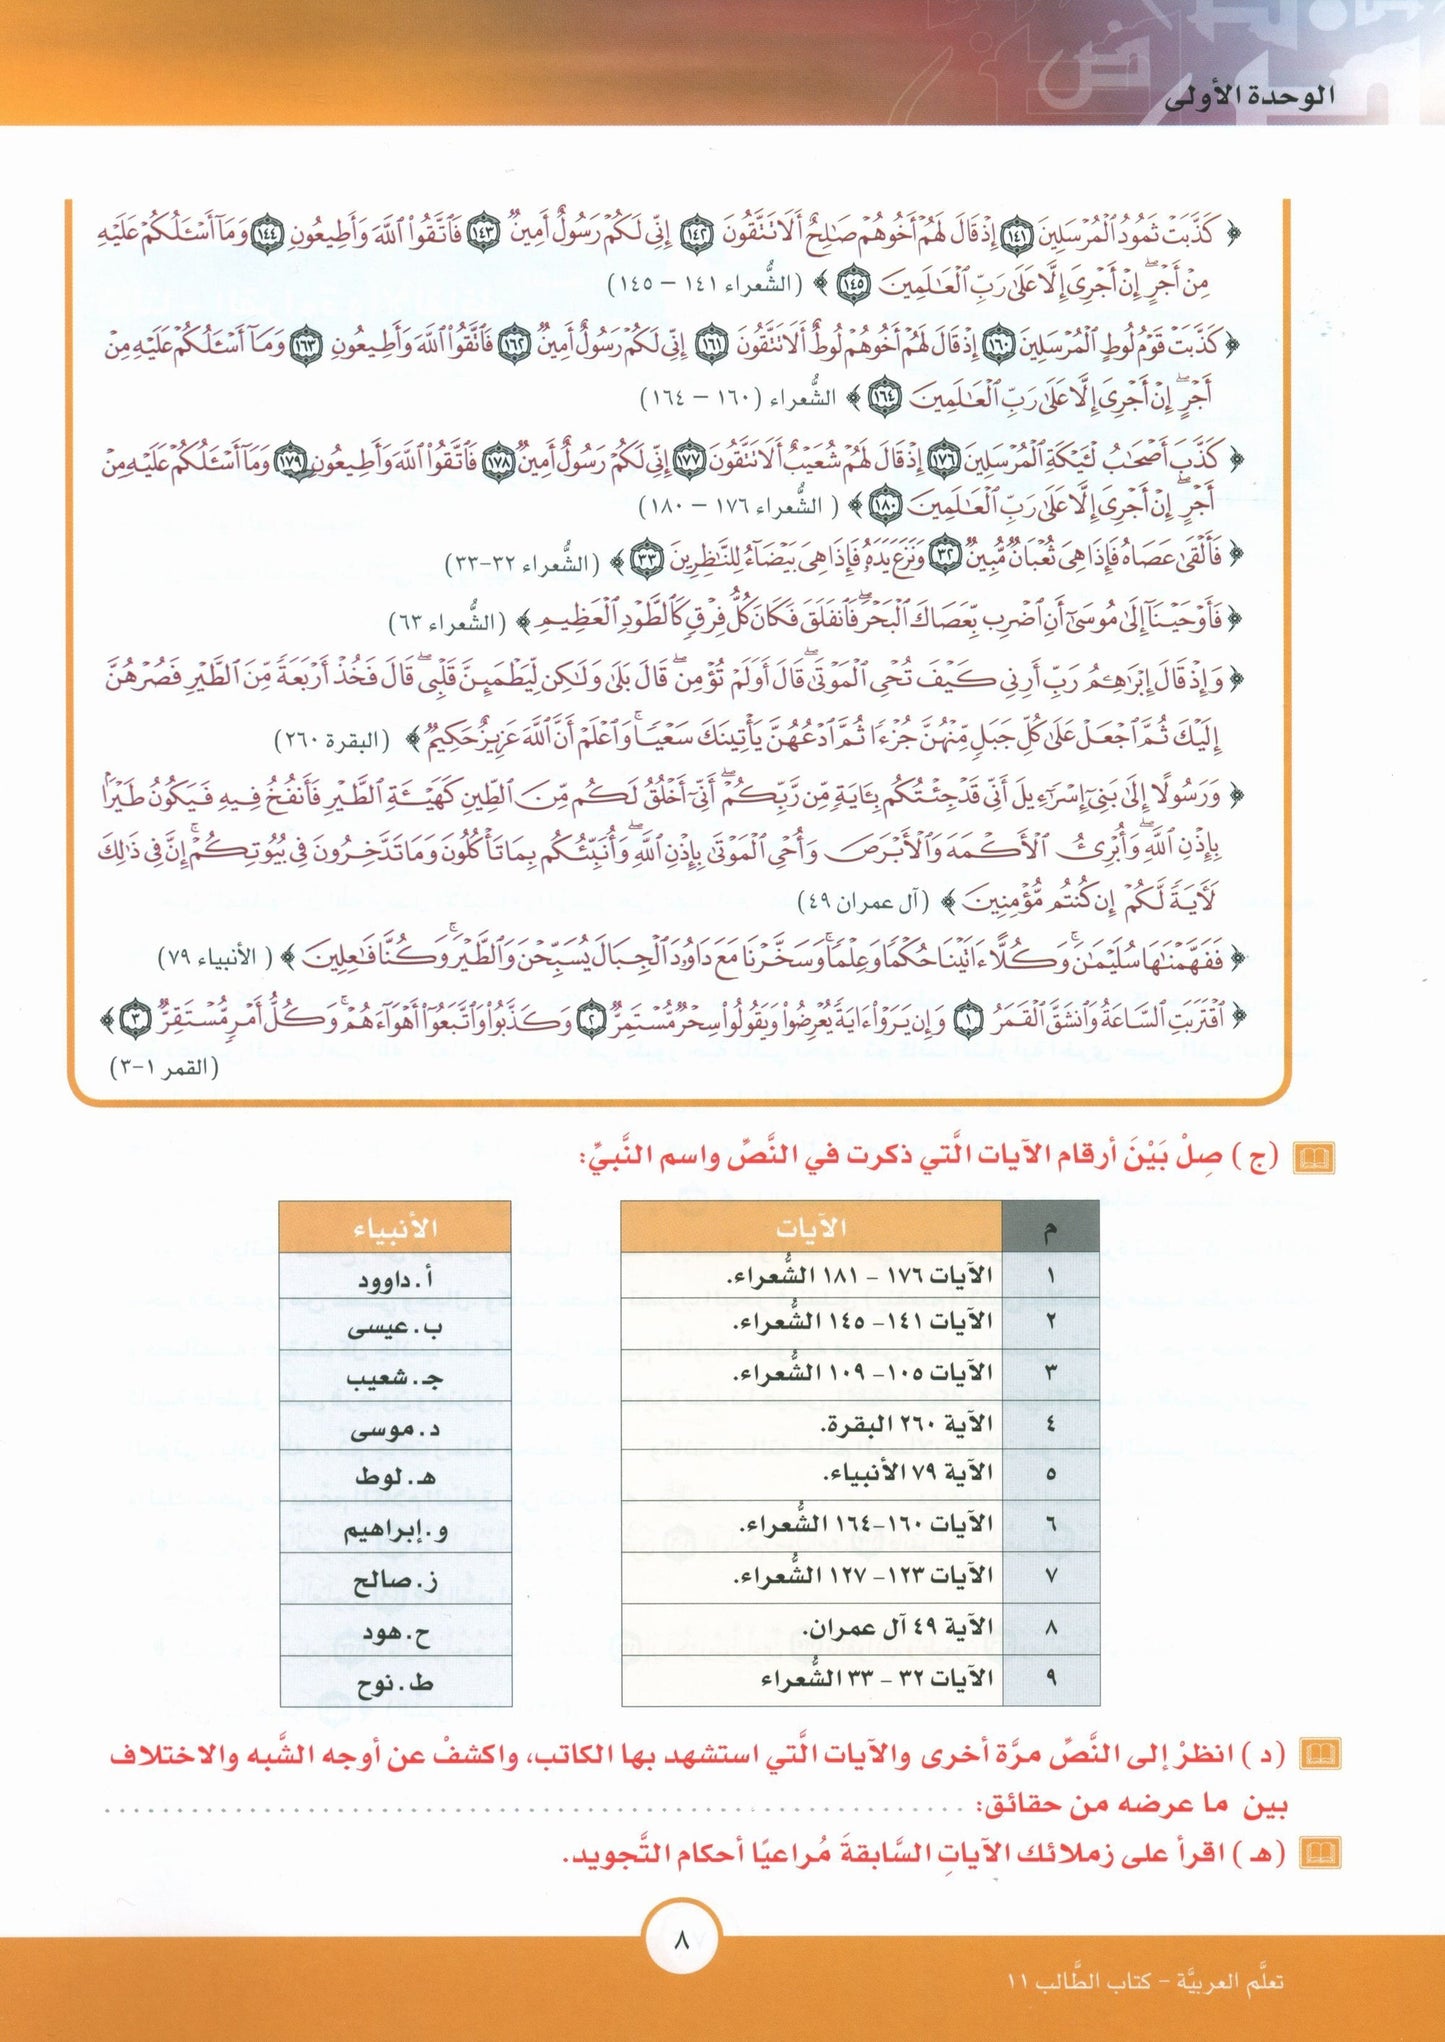 الوحدة الأولى
﴿ كَذَّبَتْ ثَمُودُ الْمُرْسَلِينَ ١٤١ إِذْ قَالَ لَهُمْ أَخُوهُمْ صَالِحٌ أَلَا تَتَّقُونَ ١٤٢ إِنِّي لَكُمْ رَسُولٌ أَمِينٌ ١٤٣ فَاتَّقُوا اللَّهَ وَأَطِيعُونِ ١٤٤ وَمَا أَسْـَٔلُكُمْ عَلَيْهِ
مِنْ أَجْرٍ إِنْ أَجْرِيَ إِلَّا عَلَىٰ رَبِّ الْعَٰلَمِينَ ١٤٥ ﴾ (الشُّعراء ١٤١ – ١٤٥)
﴿ كَذَّبَتْ قَوْمُ لُوطٍ الْمُرْسَلِينَ ١٦٠ إِذْ قَالَ لَهُمْ أَخُوهُمْ لُوطٌ أَلَا تَتَّقُونَ ١٦١ إِنِّي لَكُمْ رَسُولٌ أَمِينٌ ١٦٢ فَاتَّقُوا اللَّهَ وَأَطِيعُونِ ١٦٣ وَمَا أَسْـَٔلُكُمْ عَلَيْهِ مِنْ
أَجْرٍ إِنْ أَجْرِيَ إِلَّا عَلَىٰ رَبِّ الْعَٰلَمِينَ ١٦٤ ﴾ الشُّعراء (١٦٠ – ١٦٤)
﴿ كَذَّبَ أَصْحَٰبُ لْـَٔيْكَةِ الْمُرْسَلِينَ ١٧٦ إِذْ قَالَ لَهُمْ شُعَيْبٌ أَلَا تَتَّقُونَ ١٧٧ إِنِّي لَكُمْ رَسُولٌ أَمِينٌ ١٧٨ فَاتَّقُوا اللَّهَ وَأَطِيعُونِ ١٧٩ وَمَا أَسْـَٔلُكُمْ عَلَيْهِ مِنْ
أَجْرٍ إِنْ أَجْرِيَ إِلَّا عَلَىٰ رَبِّ الْعَٰلَمِينَ ١٨٠ ﴾ ( الشُّعراء ١٧٦ – ١٨٠)
﴿ فَأَلْقَىٰ عَصَاهُ فَإِذَا هِيَ ثُعْبَانٌ مُّبِينٌ ٣٢ وَنَزَعَ يَدَهُ فَإِذَا هِيَ بَيْضَاءُ لِلنَّٰظِرِينَ ٣٣ ﴾ (الشُّعراء ٣٢-٣٣)
﴿ فَأَوْحَيْنَا إِلَىٰ مُوسَىٰ أَنِ اضْرِب بِّعَصَاكَ الْبَحْرَ فَانفَلَقَ فَكَانَ كُلُّ فِرْقٍ كَالطَّوْدِ الْعَظِيمِ ﴾ (الشُّعراء ٦٣)
﴿ وَإِذْ قَالَ إِبْرَٰهِـۧمُ رَبِّ أَرِنِي كَيْفَ تُحْيِ الْمَوْتَىٰ قَالَ أَوَلَمْ تُؤْمِن قَالَ بَلَىٰ وَلَٰكِن لِّيَطْمَئِنَّ قَلْبِي قَالَ فَخُذْ أَرْبَعَةً مِّنَ الطَّيْرِ فَصُرْهُنَّ
إِلَيْكَ ثُمَّ اجْعَلْ عَلَىٰ كُلِّ جَبَلٍ مِّنْهُنَّ جُزْءًا ثُمَّ ادْعُهُنَّ يَأْتِينَكَ سَعْيًا وَاعْلَمْ أَنَّ اللَّهَ عَزِيزٌ حَكِيمٌ ﴾ (البقرة ٢٦٠)
﴿ وَرَسُولًا إِلَىٰ بَنِي إِسْرَٰءِيلَ أَنِّي قَدْ جِئْتُكُم بِـَٔايَةٍ مِّن رَّبِّكُمْ أَنِّي أَخْلُقُ لَكُم مِّنَ الطِّينِ كَهَيْـَٔةِ الطَّيْرِ فَأَنفُخُ فِيهِ فَيَكُونُ طَيْرًا
بِإِذْنِ اللَّهِ وَأُبْرِئُ الْأَكْمَهَ وَالْأَبْرَصَ وَأُحْيِ الْمَوْتَىٰ بِإِذْنِ اللَّهِ وَأُنَبِّئُكُم بِمَا تَأْكُلُونَ وَمَا تَدَّخِرُونَ فِي بُيُوتِكُمْ إِنَّ فِي ذَٰلِكَ
لَآيَةً لَّكُمْ إِن كُنتُم مُّؤْمِنِينَ ﴾ (آل عمران ٤٩)
﴿ فَفَهَّمْنَٰهَا سُلَيْمَٰنَ وَكُلًّا ءَاتَيْنَا حُكْمًا وَعِلْمًا وَسَخَّرْنَا مَعَ دَاوُۥدَ الْجِبَالَ يُسَبِّحْنَ وَالطَّيْرَ وَكُنَّا فَٰعِلِينَ ﴾ ( الأنبياء ٧٩)
﴿ اقْتَرَبَتِ السَّاعَةُ وَانشَقَّ الْقَمَرُ ١ وَإِن يَرَوْا ءَايَةً يُعْرِضُوا وَيَقُولُوا سِحْرٌ مُّسْتَمِرٌّ ٢ وَكَذَّبُوا وَاتَّبَعُوا أَهْوَاءَهُمْ وَكُلُّ أَمْرٍ مُّسْتَقِرٌّ ٣ ﴾
(القمر ١-٣)
(ج) صِلْ بَيْنَ أرقام الآيات الَّتي ذكرت في النَّصِّ واسم النَّبيِّ:
م الآيات الأنبياء
١ الآيات ١٧٦ – ١٨١ الشُّعراء. أ. داوود
٢ الآيات ١٤١- ١٤٥ الشُّعراء. ب. عيسى
٣ الآيات ١٠٥- ١٠٩ الشُّعراء. جـ. شعيب
٤ الآية ٢٦٠ البقرة. د. موسى
٥ الآية ٧٩ الأنبياء. هـ. لوط
٦ الآيات ١٦٠-١٦٤ الشُّعراء. و. إبراهيم
٧ الآيات ١٢٣- ١٢٧ الشُّعراء. ز. صالح
٨ الآية ٤٩ آل عمران. ح. هود
٩ الآيات ٣٢ – ٣٣ الشُّعراء ط. نوح
(د) انظرْ إلى النَّصِّ مرَّة أخرى والآيات الَّتي استشهد بها الكاتب، واكشفْ عن أوجه الشَّبه والاختلاف
بين ما عرضه من حقائق: ........................................
(هـ) اقرأ على زملائك الآياتِ السَّابقةَ مُراعيًا أحكام التَّجويد.
٨
تعلَّم العربيَّة – كتاب الطَّالب ١١